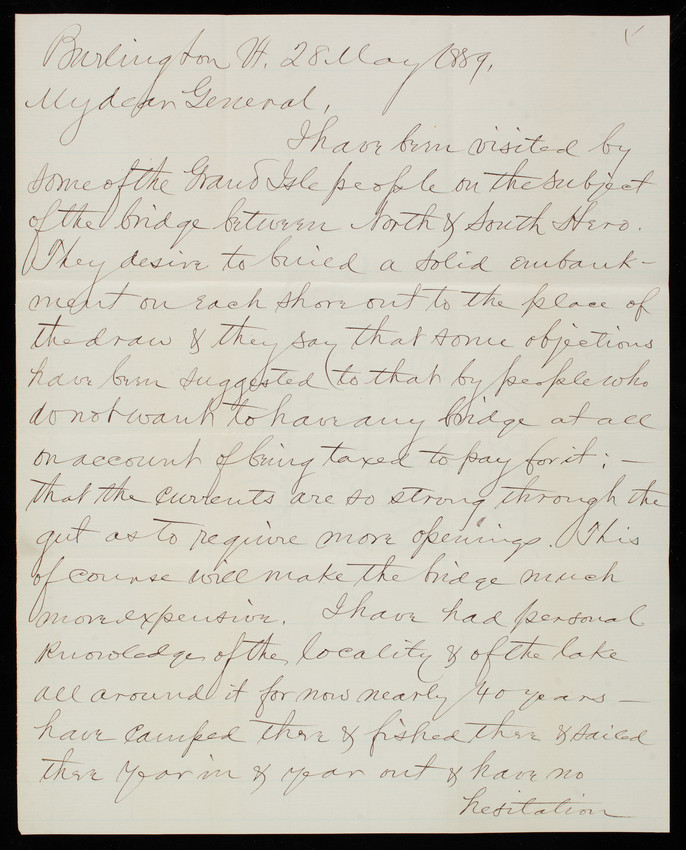 Burlington Vt. 28 May 1889.
My dear General,
I have been visited by
some of the Grand Isle people on the subject
of the bridge between North & South Hero.
They desire to build a solid embank-
ment on each shore out to the place of
the draw & they say that some objections
have been suggested to that by people who
do not want to have any bridge at all
on account of being taxed to pay for it; —
that the currents are so strong through the
gut as to require more openings. This
of course will make the bridge much
more expensive. I have had personal
knowledge of the locality & of the lake
all around it for now nearly 40 years —
have camped there & fished there & sailed
there year in & year out & have no
hesitation